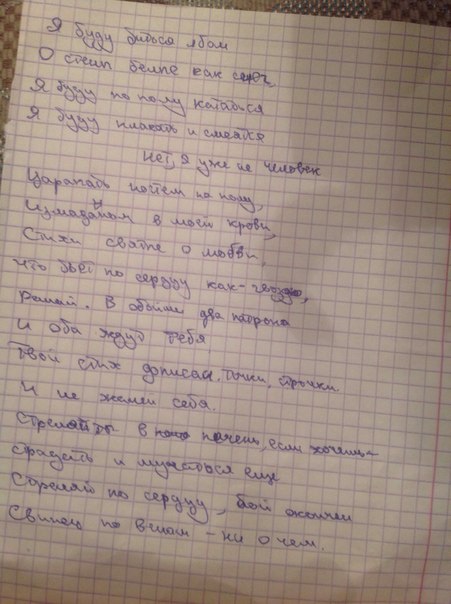 Я буду биться лбом
О стены белые как снег,
Я буду по полу кататься
Я буду плакать и смеяться
Нет, я уже не человек
Царапать ногтем на полу,
Измазаном в моей крови,
Стихи святые о любви,
что бьёт по сердцу как-гвоздю,
Решай. В обойме два патрона
И оба ждут тебя
Твой стих дописан, точки, строчки.
И не жалей себя.
Стреляй ты в печень, если хочешь
страдать и мучаться еще
Стреляй по сердцу, бой окончен
Свинец по венам - ни о чем.